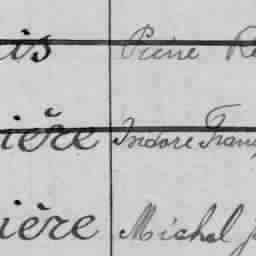 is Pierre
ière Isidore Franç
ière Michel J